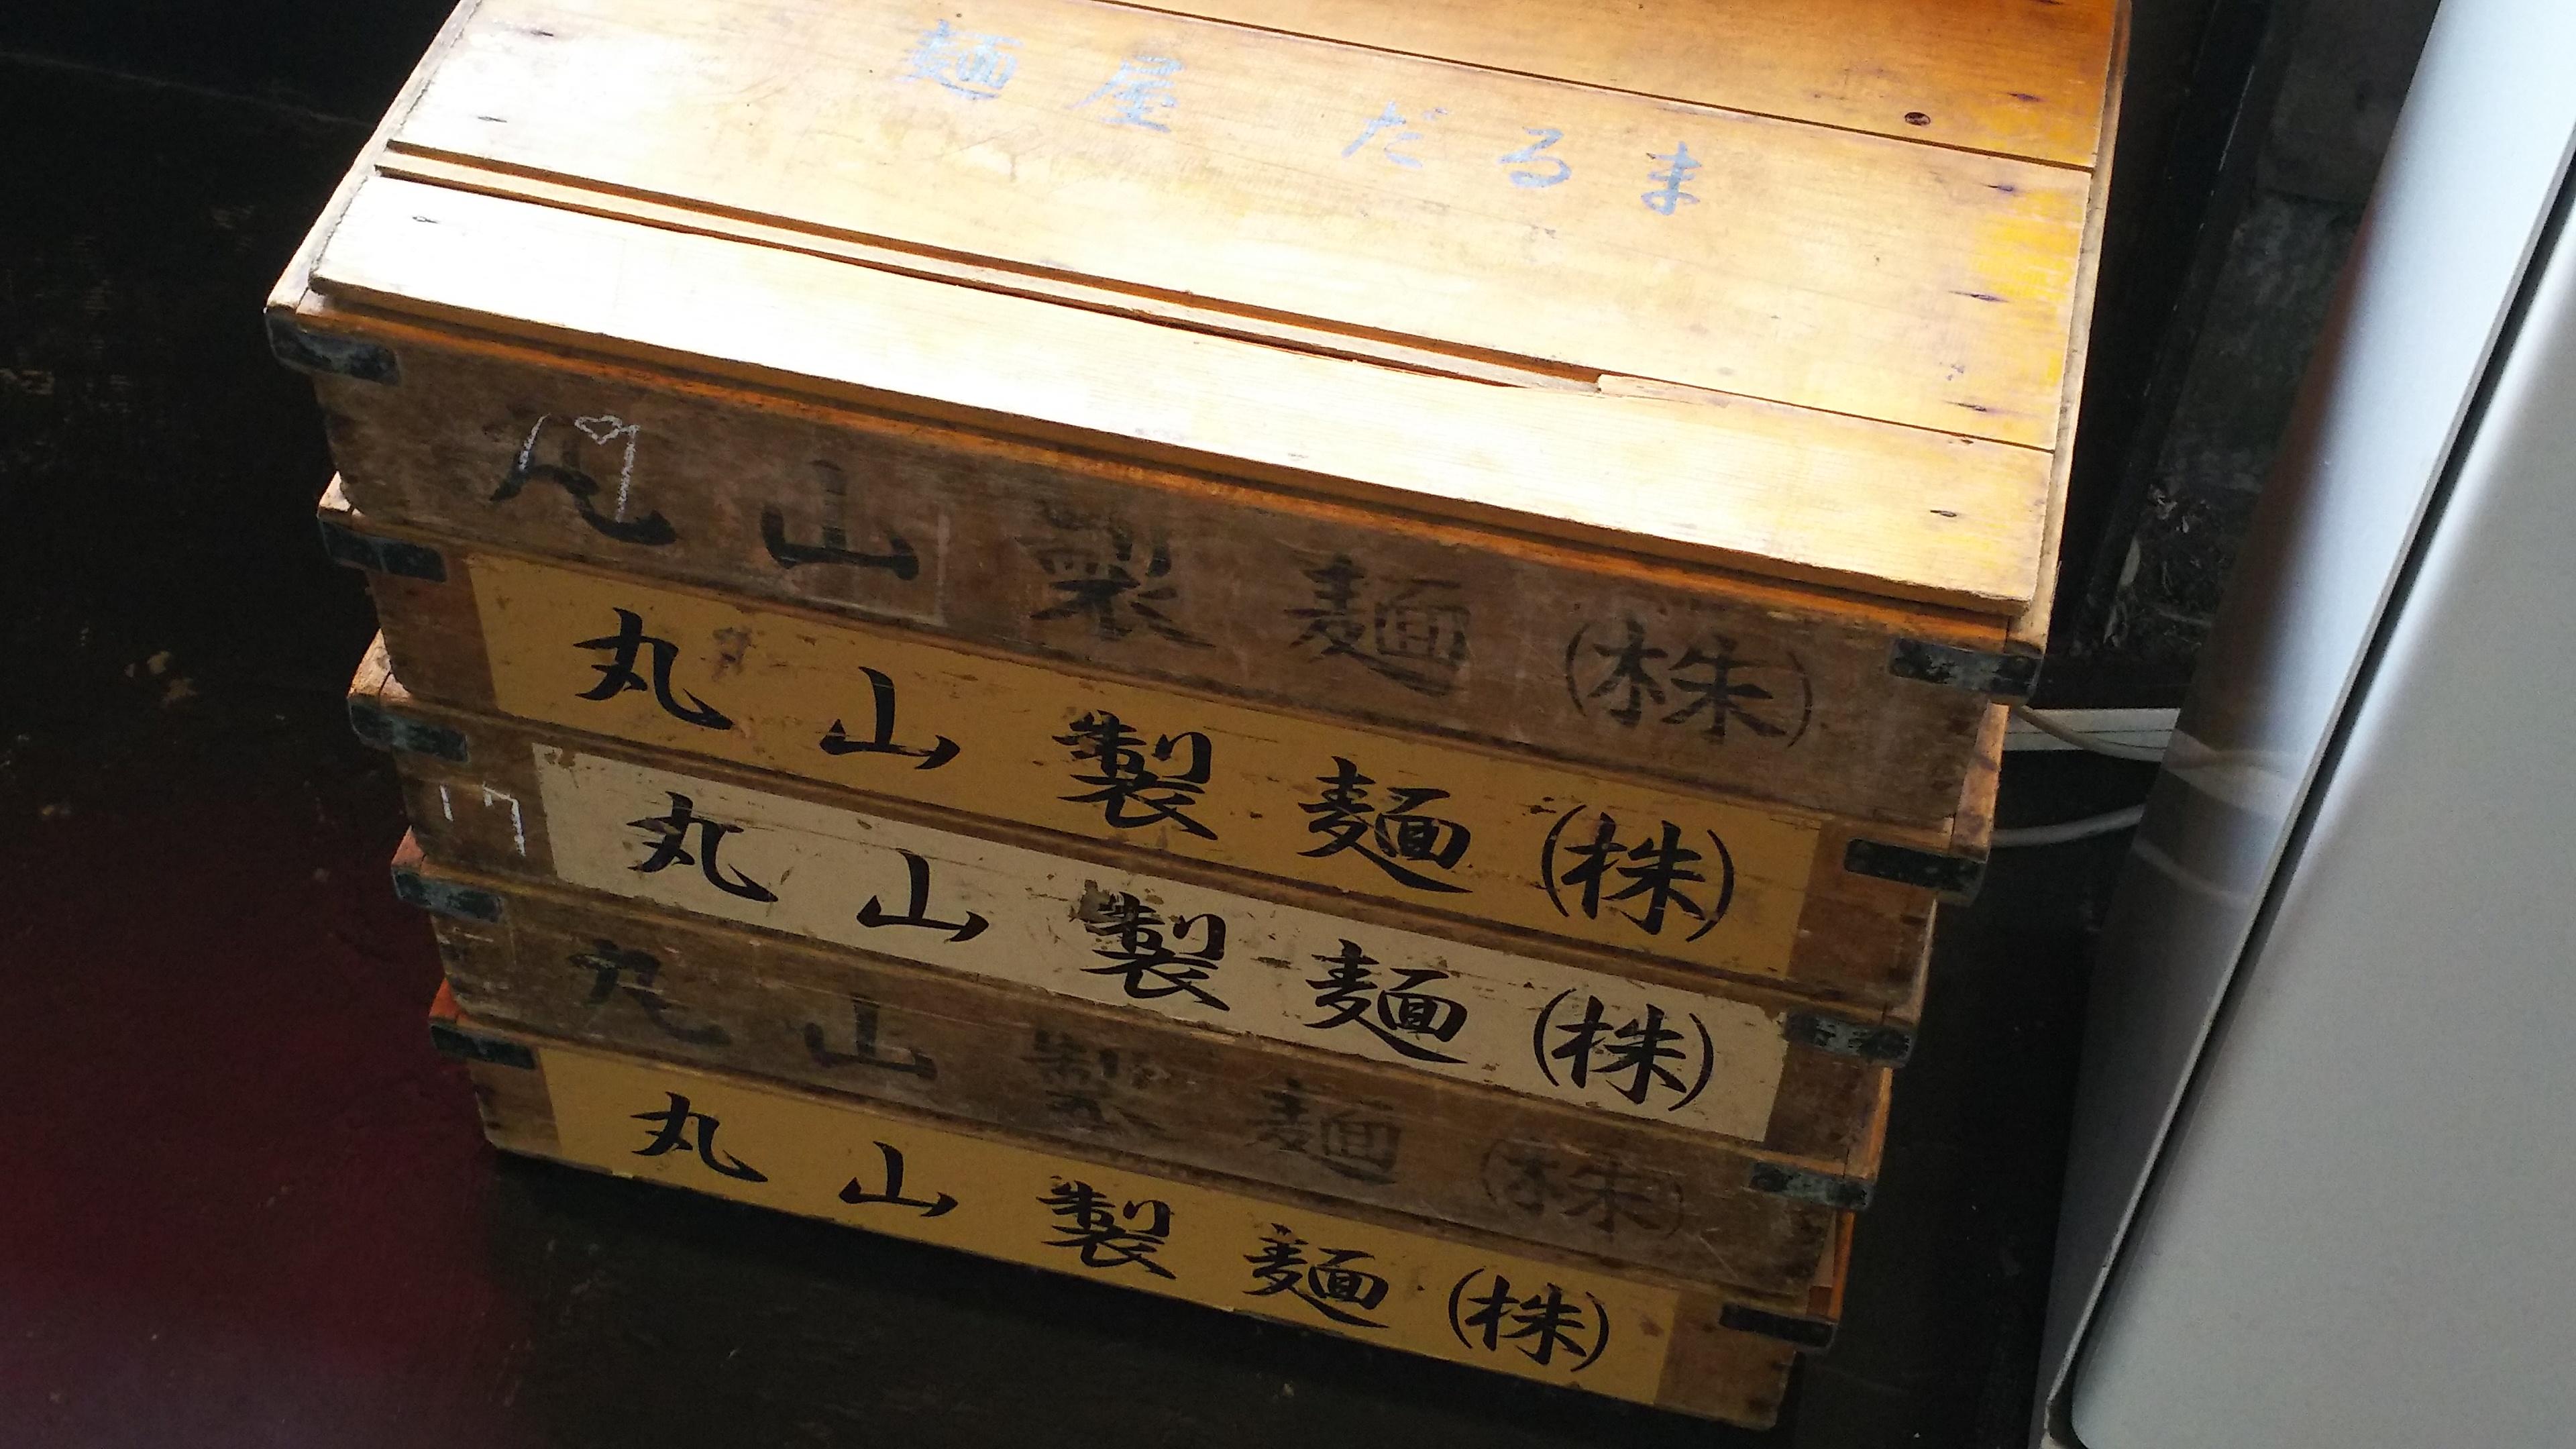 麺屋 だるま
丸山製麺(株)
丸山製麺(株)
丸山製麺(株)
17
丸山製麺(株)
丸山製麺(株)